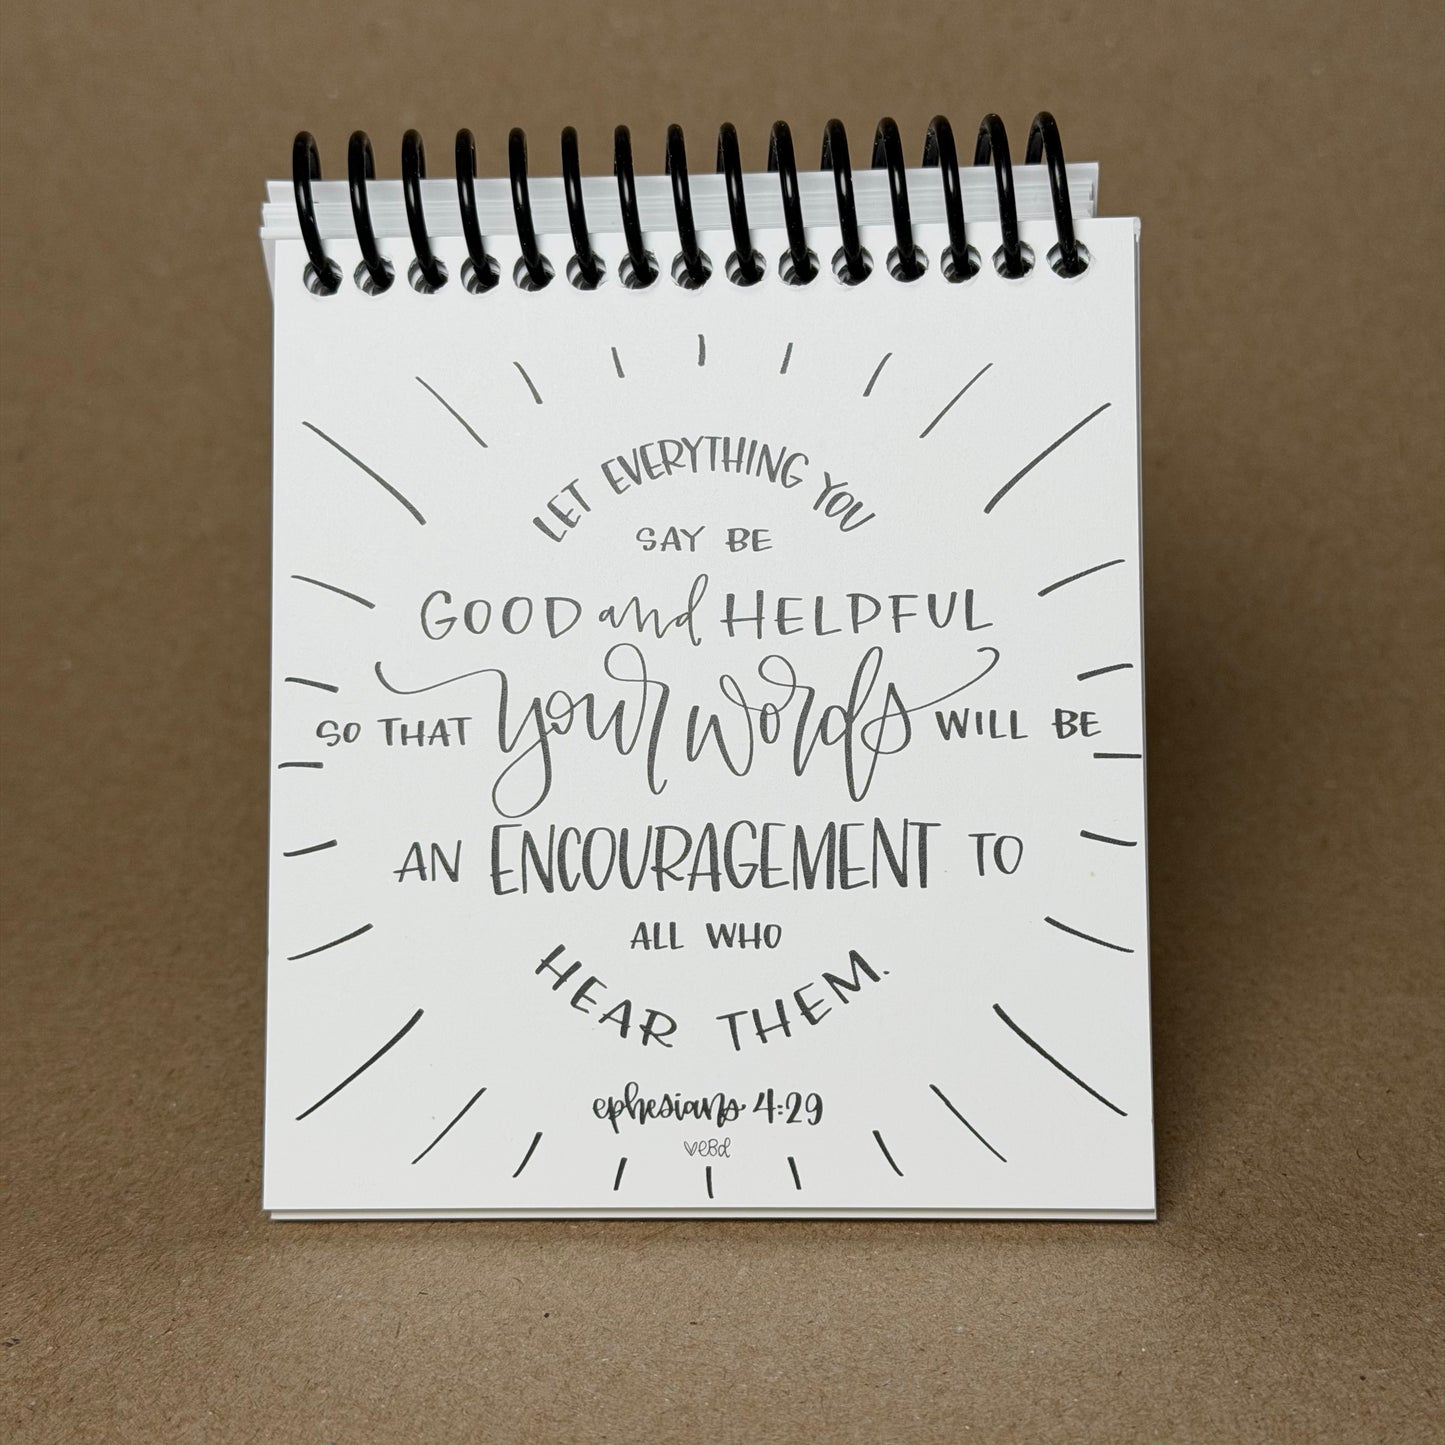 LET EVERYTHING YOU
SAY BE
GOOD and HELPFUL
SO THAT your words WILL BE
AN ENCOURAGEMENT TO
ALL WHO
HEAR THEM.
ephesians 4:29
eBd